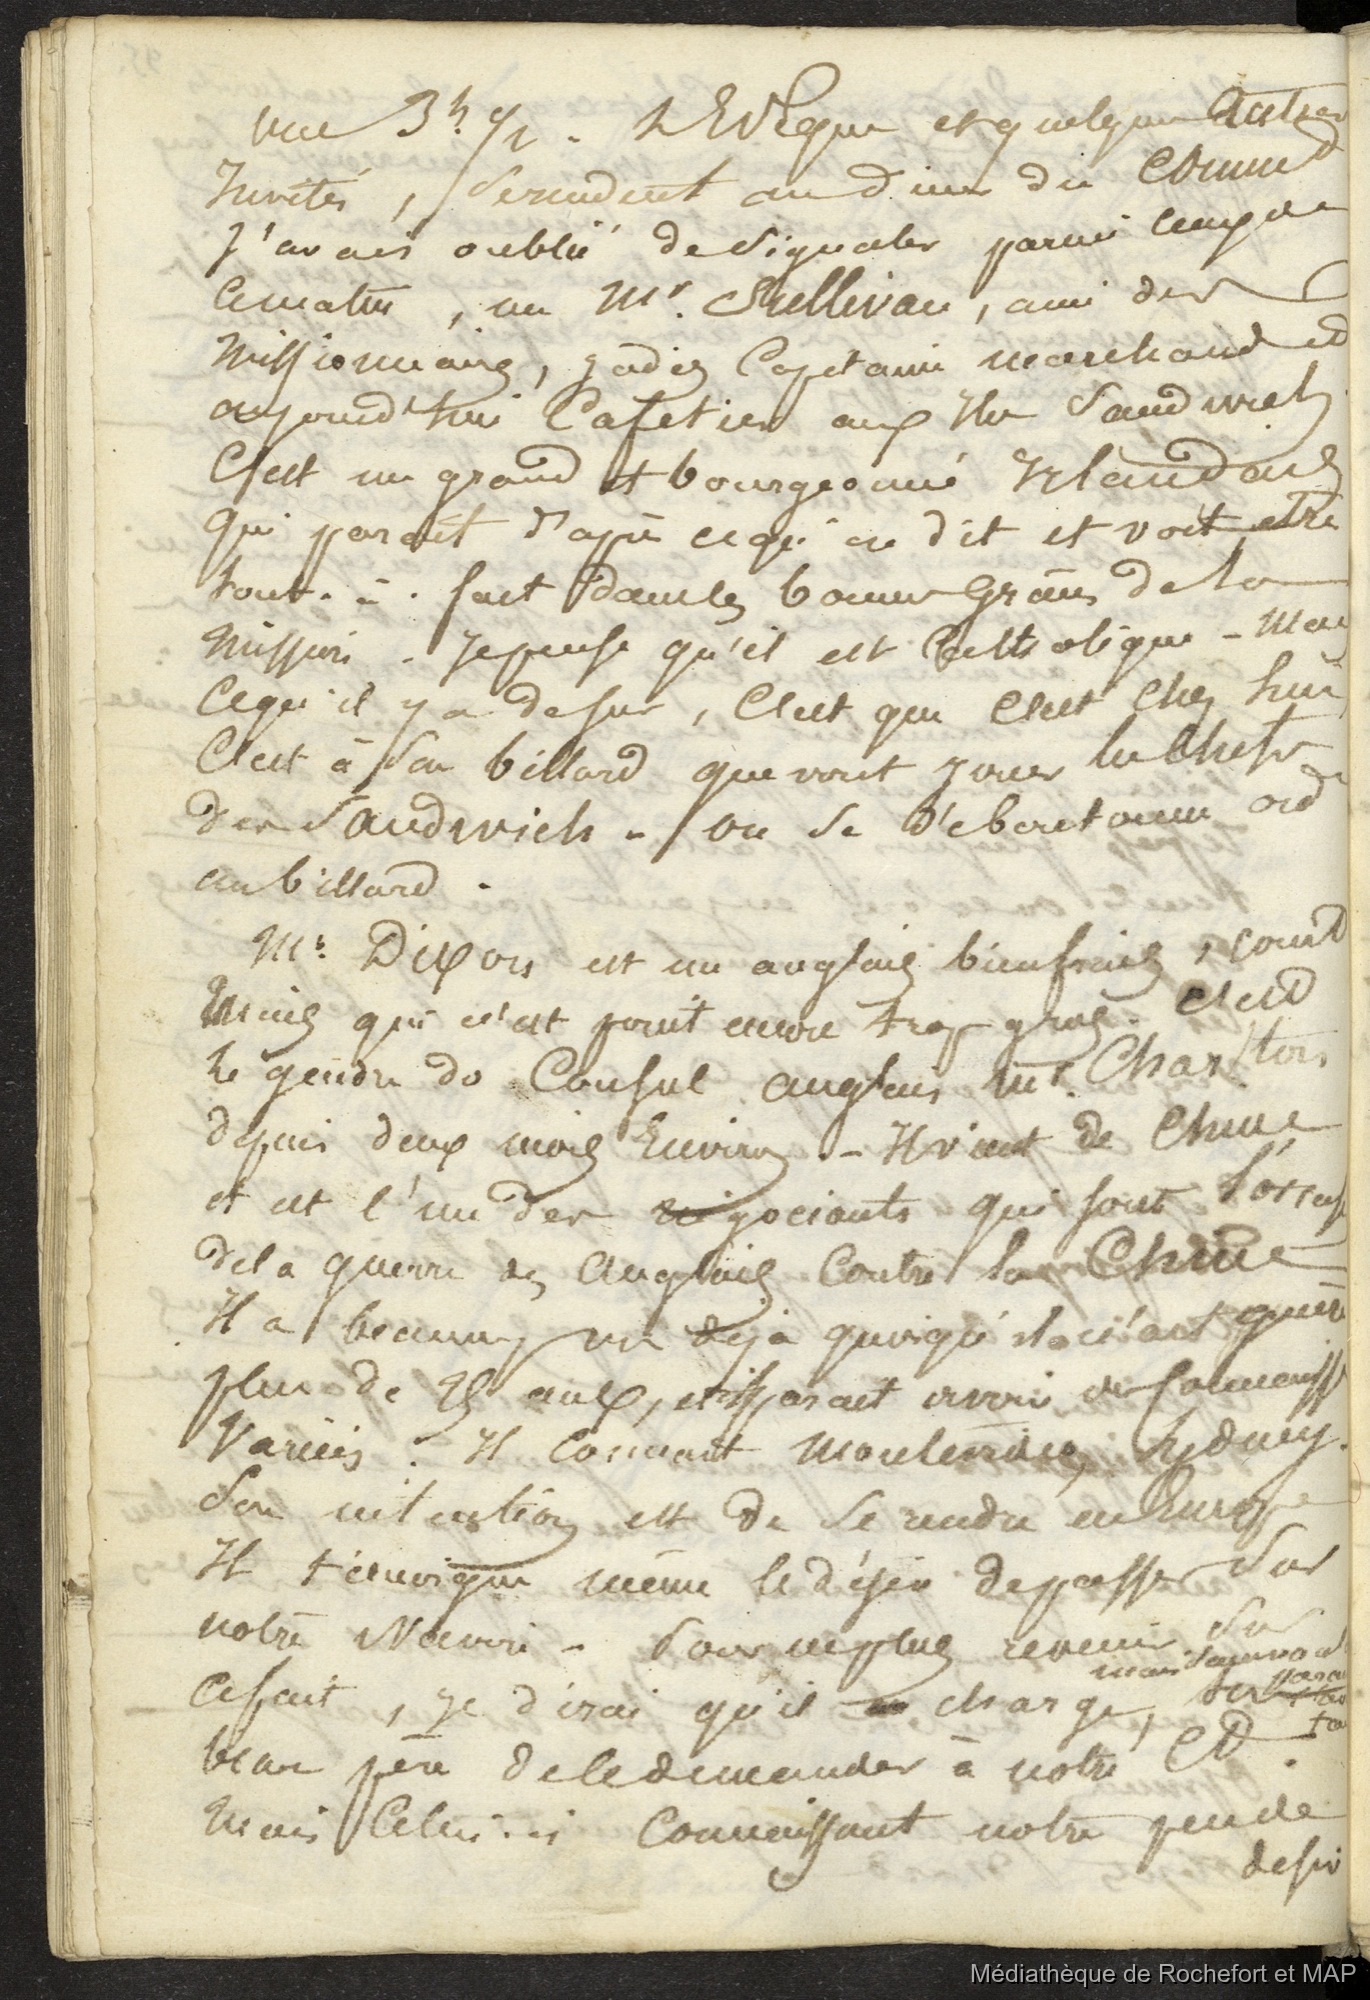 vue 3h. 1/2 - L'Evêque et quelques autres
Invités, se rendent au diner du Comm
J'avais oublié de signaler parmi ceux de
ce matin, un Mr. Sullivan, ami des
Missionnaires, jadis Capitaine marchand et
aujourd'hui Cafetier aux Iles Sandwich
C'est un grand et bourgeonné Irlandais
qui parait d'après ce qu'on dit et voit etre
tout-à-fait dans les bonnes Grâces de la
Mission - Je pense qu'il est Catholique - Mais
Ce qu'il y a de sur, C'est que C'est Chez lui
C'est à son billard que vont jouer les Chefs
des Sandwich - on se
au billard.
Mr. Dixon est un anglais bien frais, court
Mais qui n'est point encore trop gros. C'est
le gendre du Consul anglais Mr. Charlton
depuis deux mois Environ. - Il vient de Chine
et est l'un des négociants qui sont
de la guerre des Anglais Contre la Chine
Il a beaucoup vu déjà quoiqu'il n'ait guère
plus de ans, et il parait avoir des Connaiss
Variées. Il Connait Sydney.
Son intention est de se rendre en Europe
Il témoigne même le désir de passer sur
notre Navire - Pour ne plus revenir sur
ce fait, je dirai qu'il charge, son
beau père de le demander à notre Ct.
Mais Celui-ci Connaissant notre peu de
desir
Médiathèque de Rochefort et MAP